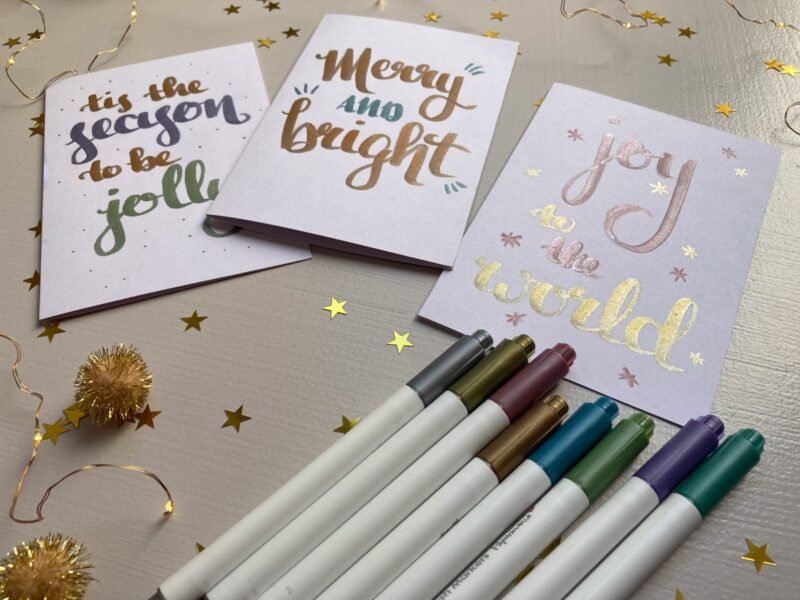 tis the
season
to be
jolly
Merry
AND
bright
joy
to
the
world
Markers Papermania